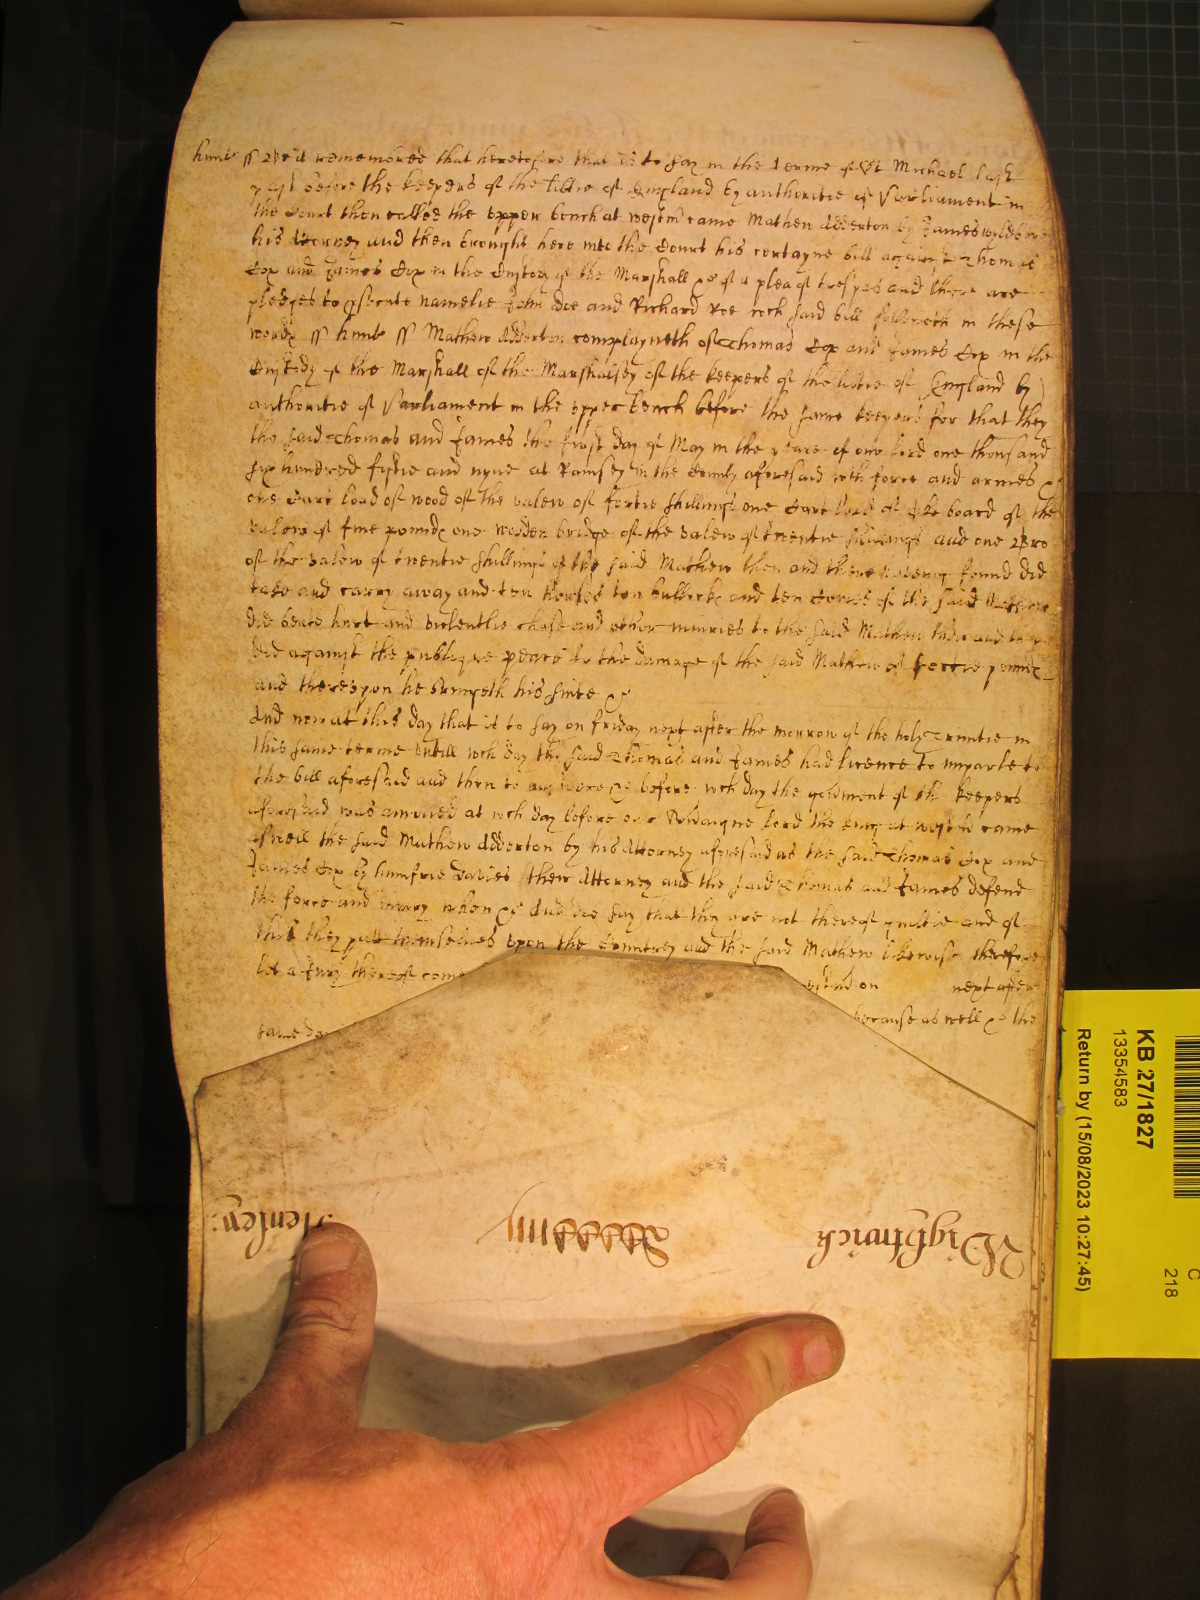 hunt ss Be it remembred that heretofore that is to say in the Terme of St Michael last
past before the keepers of the libtie of England by authoritie of Parliament in
the Court then called the upper bench at westm came Mathew Adderton by James
his Attorney and then brought here into the Court his certayne bill against Thomas
Cox and James Cox in the Custody of the Marshall &c of a plea of trespas and there are
pledges to psecute namelie John Doe and Richard Roe wch said bill followeth in these
words ss hunt ss Mathew Adderton complayneth of Thomas Cox and James Cox in the
Custody of the Marshall of the Marshalsey of the keepers of the libtie of England by
authoritie of Parliament in the upper bench before the same keepers for that they
the said Thomas and James the first day of May in the yeare of our lord one thousand
six hundred fiftie and nyne at Ramsey in the County aforesaid with force and armes &c
one Cart load of wood of the valew of fortie shillings one Cart load of board of the
valew of five pounds one wooden bridge of the valew of twentie shillings and one
of the valew of twentie shillings of the said Mathew then and there being found did
take and carry away and ten horses ten bullocks and ten Cowes of the said Mathew
did beate hurt and violentlie chase and other iniuries to the said Mathew then and there
did against the publique peace to the damage of the said Mathew of fortie pounds
and thereupon he bringeth his suite &c
And now at this day that is to say on friday next after the morrow of the holy Trinitie in
this same terme untill wch day the said Thomas and James had licence to imparle to
the bill aforesaid and then to answere &c before wch day the of the keepers
aforesaid was at wch day before our Soveraigne lord the King at westm came
aswell the said Mathew Adderton by his Attorney aforesaid as the said Thomas Cox and
James Cox by humfrie Davies their Attorney and the said Thomas and James defend
the force and iniury when &c And doe say that they are not thereof guiltie and of
this they putt themselves upon the Countrey and the said Mathew likewise therefore
let a Jury thereof come westm on next after
because as well &c the
same day
Wightwick
Henley
KB 27/1827
13354583
Return by (15/08/2023 10:27:45)
C
218